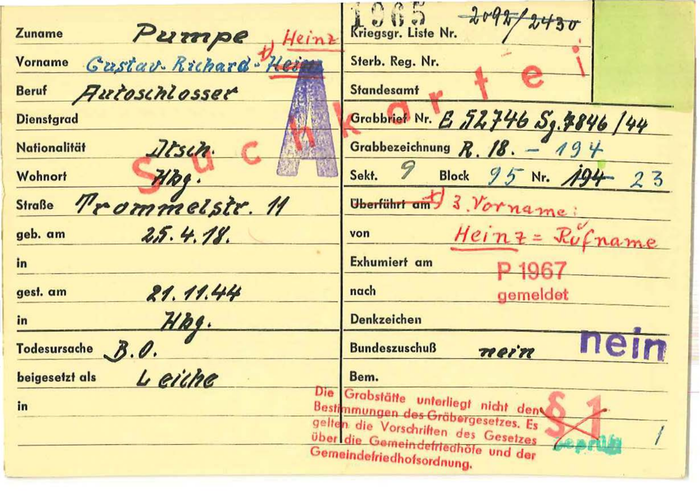 Zuname Pumpe Heinz
Vorname Gustav-Richard-Hein
Beruf Autoschlosser
Dienstgrad
Nationalität Dtsch.
Wohnort Hbg.
Straße Trommelstr. 11
geb. am 25.4.18.
in
gest. am 21.11.44
in Hbg.
Todesursache B.O.
beigesetzt als Leiche
in
A
Suchkartei
1965
Kriegsgr. Liste Nr. 2092/2430
Sterb. Reg. Nr.
Standesamt
Grabbrief Nr. E 52746 Sg. 7846/44
Grabbezeichnung R. 18. - 194
Sekt. 9 Block 95 Nr. 194 23
Überführt am x) 3. Vorname:
von Heinz = Rufname
Exhumiert am
P 1967
nach gemeldet
Denkzeichen
Bundeszuschuß nein nein
Bem.
Die Grabstätte unterliegt nicht den
Bestimmungen des Gräbergesetzes. Es
gelten die Vorschriften des Gesetzes
über die Gemeindefriedhöfe und der
Gemeindefriedhofsordnung.
§ 1
geprüft
1